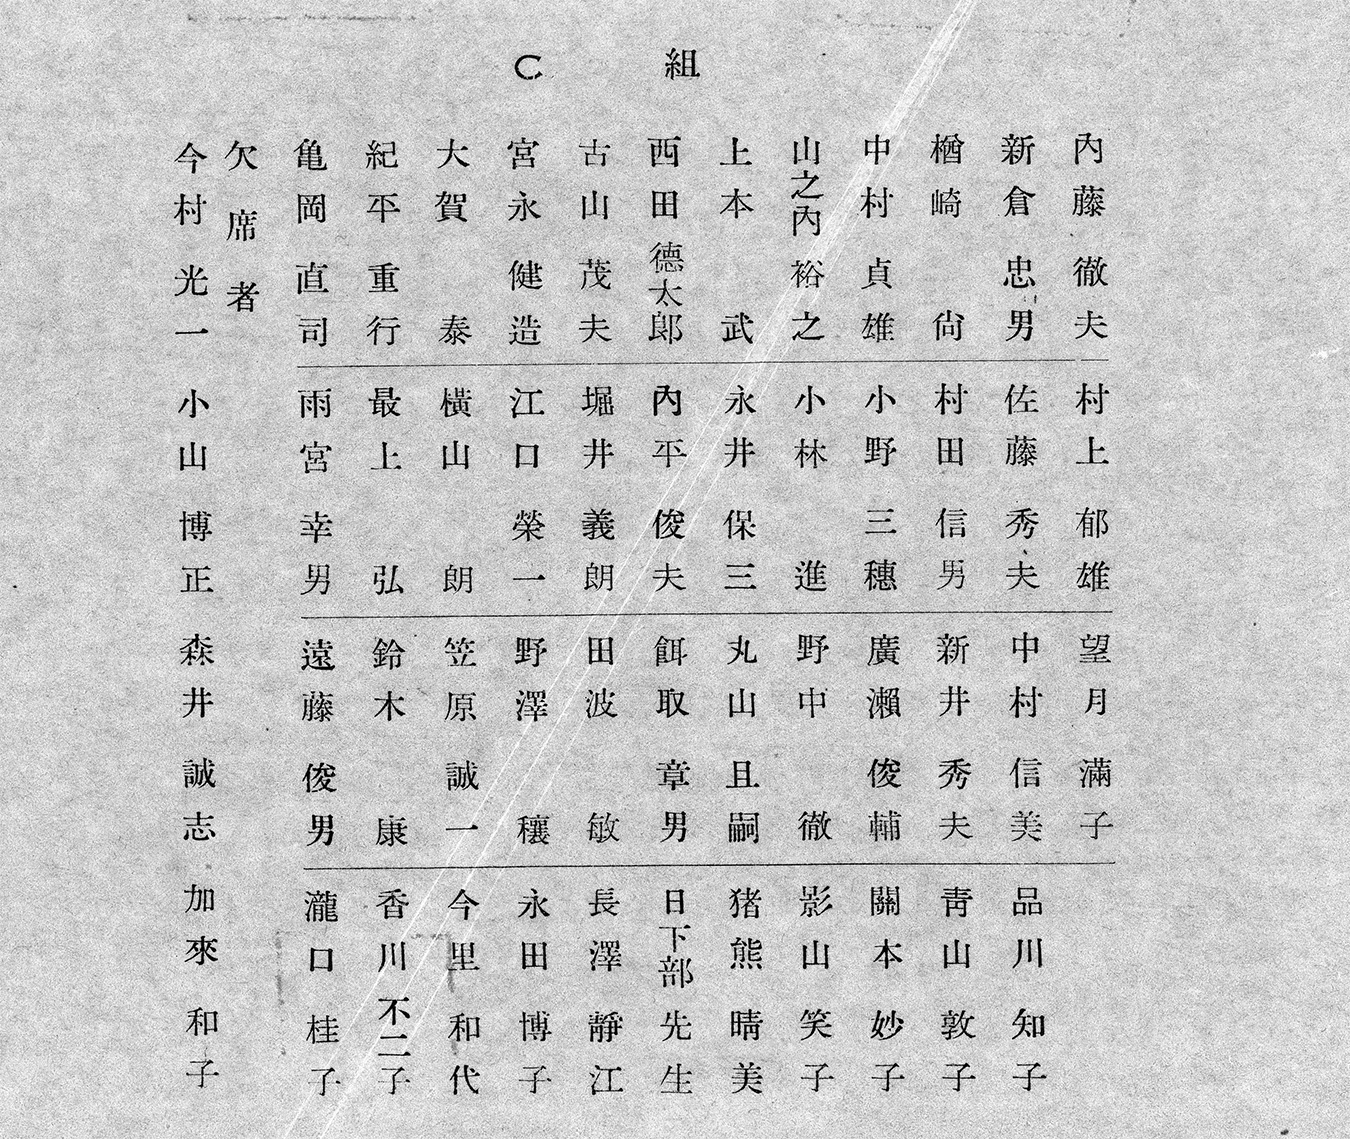 C 組
內藤徹夫
新倉忠男
楢崎尙
中村貞雄
山之內裕之
上本武
西田德太郎
古山茂夫
宮永健造
大賀泰
紀平重行
亀岡直司
村上郁雄
佐藤秀夫
村田信男
小野三穗
小林進
永井保三
內平俊夫
堀井義朗
江口榮一
橫山朗
最上弘
雨宮幸男
望月滿子
中村信美
新井秀夫
廣瀨俊輔
野中徹
丸山且嗣
餌取章男
田波敏
野澤穰
笠原誠一
鈴木康
遠藤俊男
品川知子
靑山敦子
關本妙子
影山笑子
猪熊晴美
日下部先生
長澤靜江
永田博子
今里和代
香川不二子
瀧口桂子
欠席者
今村光一
小山博正
森井誠志
加來和子